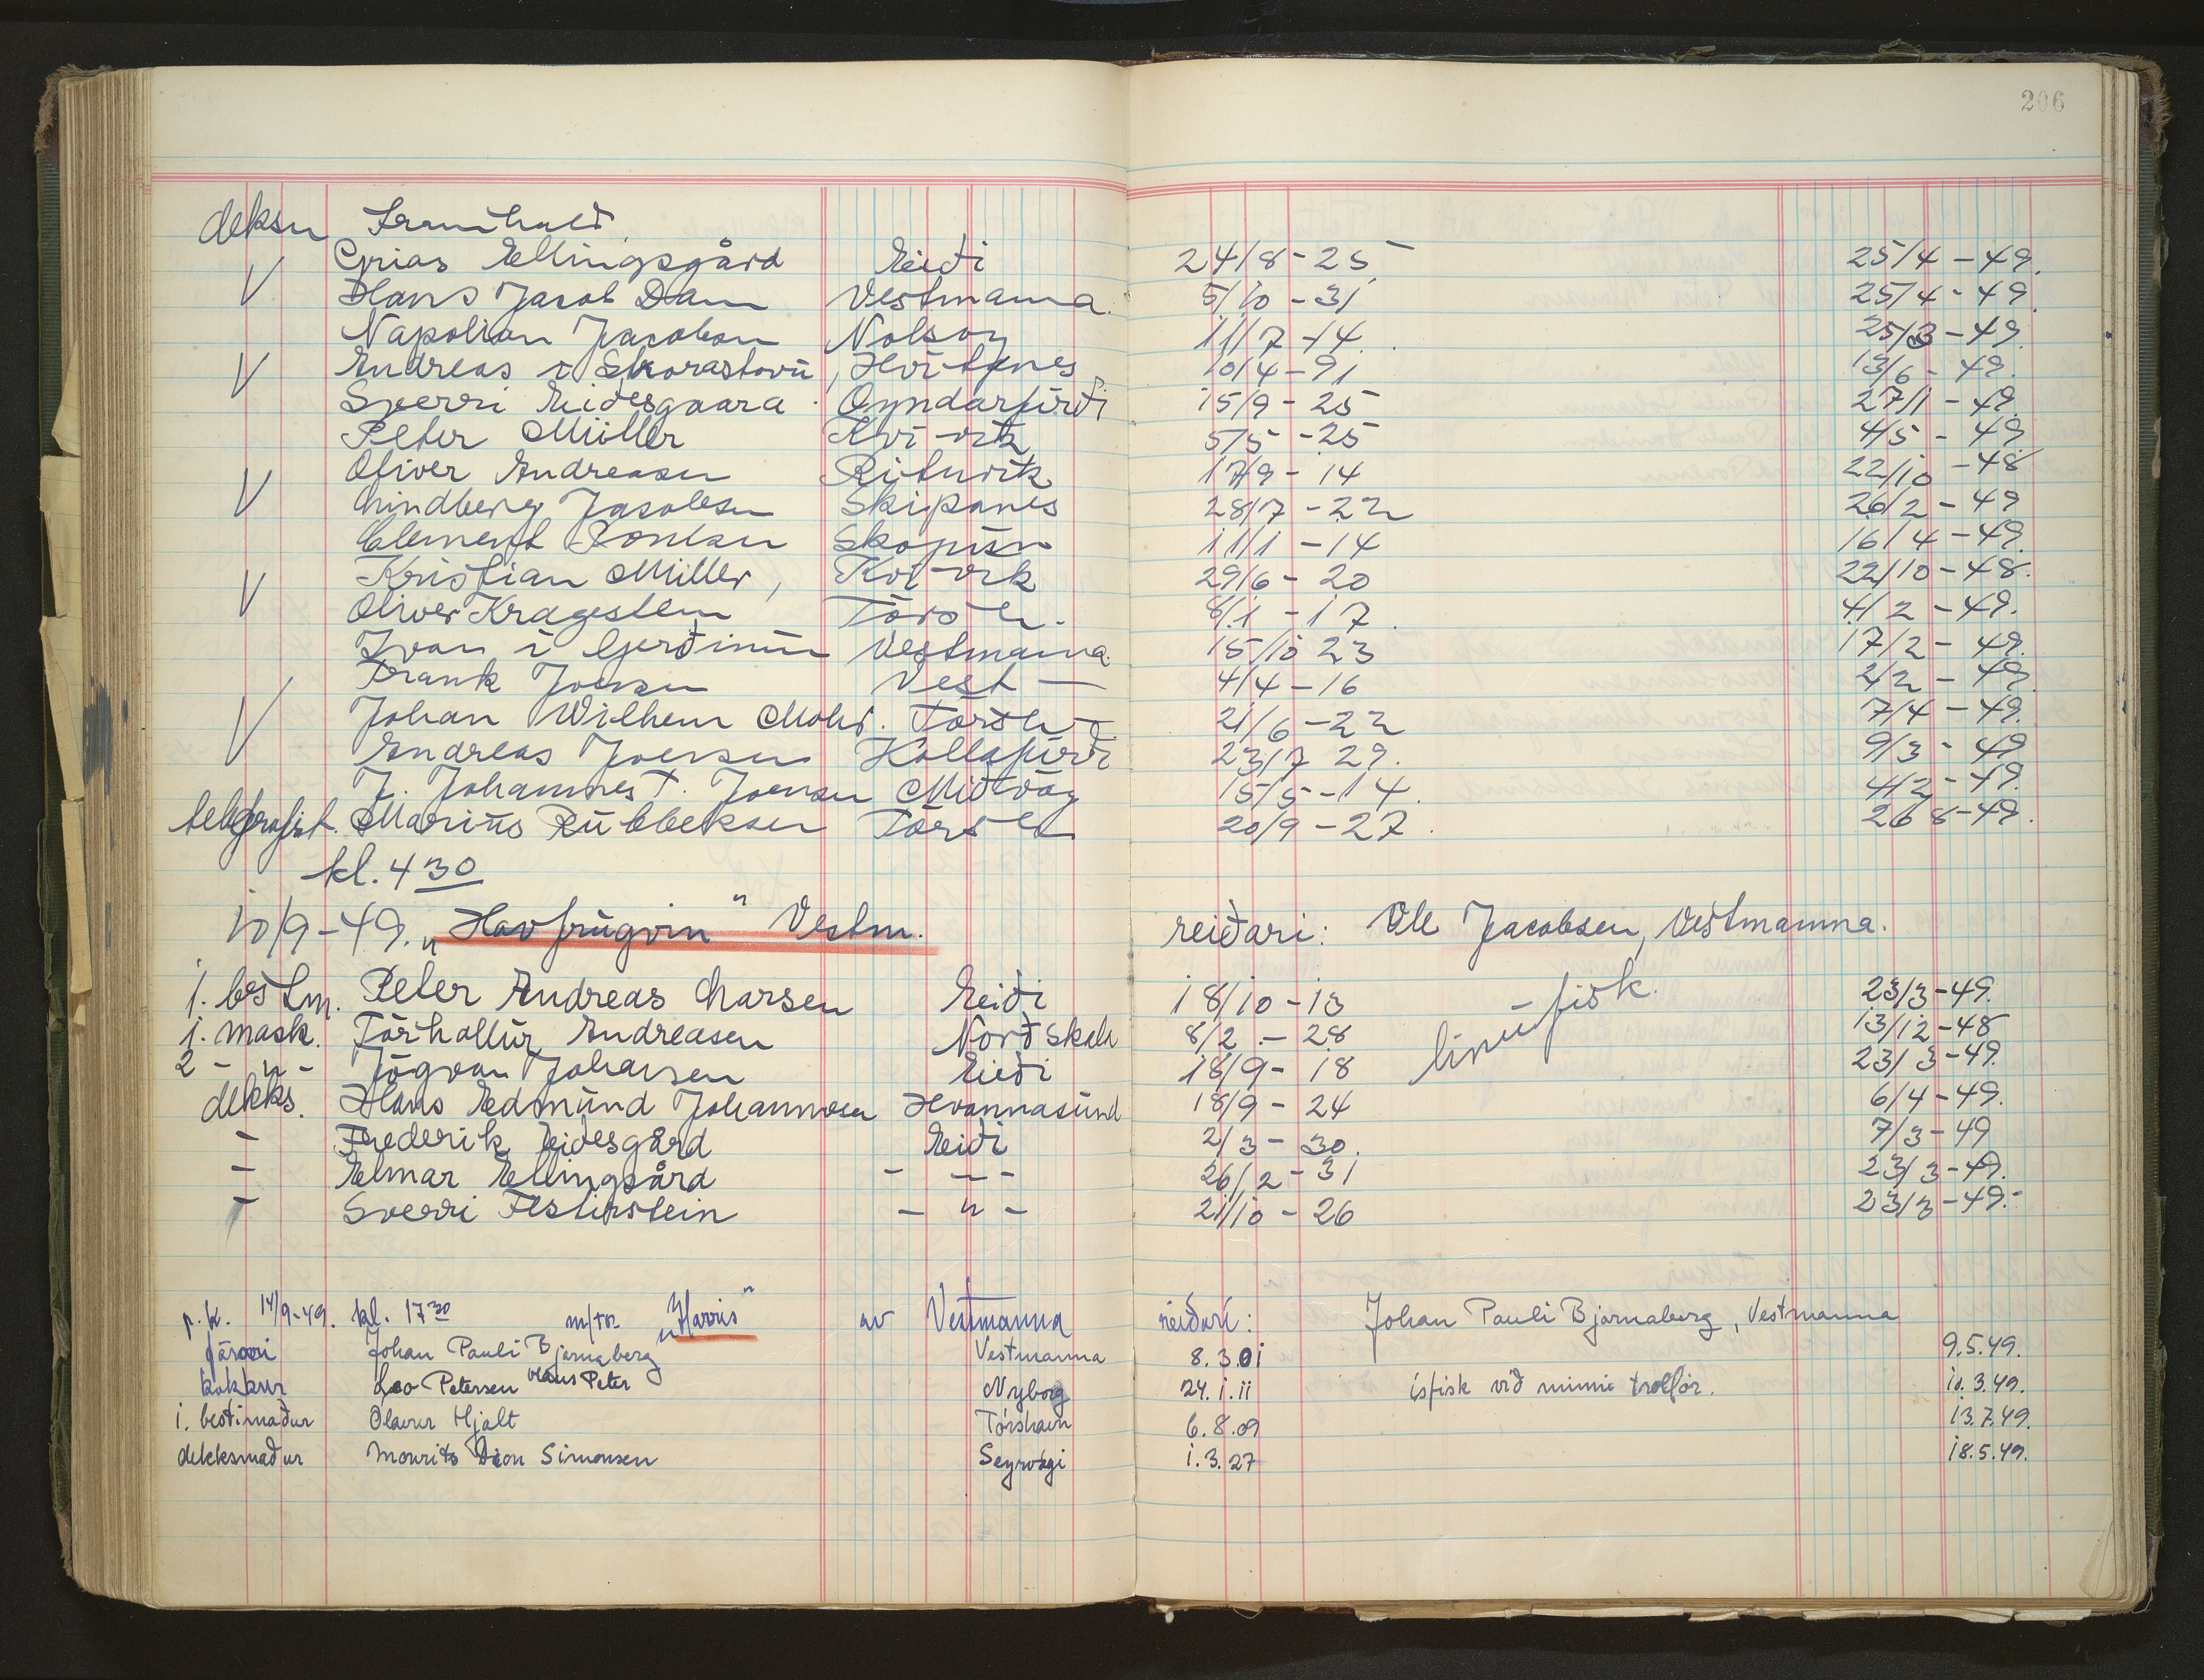 206
deksn Framhald
Grias Ellingsgård Eiði 24/8 - 25 25/4 - 49.
V Hans Jacob Dam Vestmanna. 5/10 - 31 25/4 - 49
Napolian Jacobsen Nolsoy 11/7 - 14. 25/3 - 49.
V Andreas í Skorastovu, Hvítanes 10/4 - 91 13/6 - 49.
Sverri Eidesgaara Oyndarfirði 15/9 - 25 27/1 - 49
Peter Müller Kví-vík 5/5 - 25 4/5 - 49
Oliver Andreasen Rituvík 17/9 - 14 22/10 - 48
V Lindberg Jacobsen Skipanes 28/7 - 22 26/2 - 49
Clement Poulsen Skopun 11/1 - 14 16/4 - 49.
Kristian Müller, Kví-vík 29/6 - 20 22/10 - 48.
V Oliver Kragesteen Tórsh. 8/1 - 17. 4/2 - 49.
Ivan í Gerðinum Vestmanna 15/10 23 17/2 - 49.
Frank Joensen Vest — 4/4 - 16 2/2 - 49
V Johan Wilhem Mohr. Tórsh 21/6 - 22 7/4 - 49.
Andreas Joensen Kollafirði 23/7 29. 9/3 - 49
J. Johannes T. Joensen Miðvág 15/5 - 14. 4/2 - 49.
telegrafist. Marius Rubbeksen Tórsh 20/9 - 27. 26 8 - 49.
kl. 4 30
10/9 - 49. „Havfrugvin" Vestm. reiðari: Ole Jacobsen, Vestmanna.
1. bestm. Peter Andreas Larsen Eiði 18/10 - 13 línu-fisk. 23/3 - 49.
1. mask. Tórhallur Andreasen Norðskála 8/2 - 28 13/12 - 48
2 - " - Jógvan Johansen Eiði 18/9 - 18 23/3 - 49.
dekks. Hans Edmund Johannesen Hvannasund 18/9 - 24 6/4 - 49.
- Frederik Eidesgård Eiði 2/3 - 30. 7/3 - 49
- Elmar Ellingsård - — - 26/2 - 31 23/3 - 49.
- Sverri Festirstein - " - 21/10 - 26 23/3 - 49.
p. k. 14/9-49. kl. 17 30 m/tr „Harris" av Vestmanna reiðari: Johan Pauli Bjarnaberg, Vestmanna
Johan Pauli Bjarnaberg Vestmanna 8. 3. 01 9.5.49.
kokkur Leo Petersen Hans Peter Nyborg 24. 1. 11 ísfisk við minni trolfør. 10. 3. 49.
1. bestimaður Olavur Hjalt Tórshavn 6. 8. 09 13.7.49.
dekksmaður Mourits Dion Simonsen Seyrvági 1. 3. 27 18.5.49.